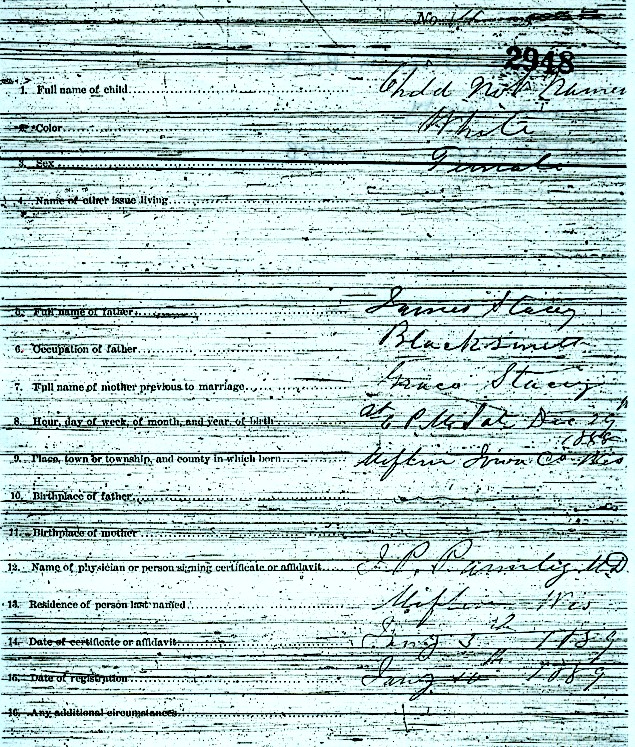 No.
2948
1. Full name of child Child Not Named
2. Color White
3. Sex Female
4. Name of other issue living
5. Full name of father James Stacey
6. Occupation of father Blacksmith
7. Full name of mother previous to marriage Grace Stacey
8. Hour, day of week, of month, and year, of birth at 6 P.M. Sat. Dec 29th
1888
9. Place, town or township, and county in which born Mifflin Iowa Co Wis
10. Birthplace of father
11. Birthplace of mother
12. Name of physician or person signing certificate or affidavit J. P. M.D
13. Residence of person last named Mifflin Wis
14. Date of certificate or affidavit Jany 5th 1889
15. Date of registration Jany 1889
16. Any additional circumstances